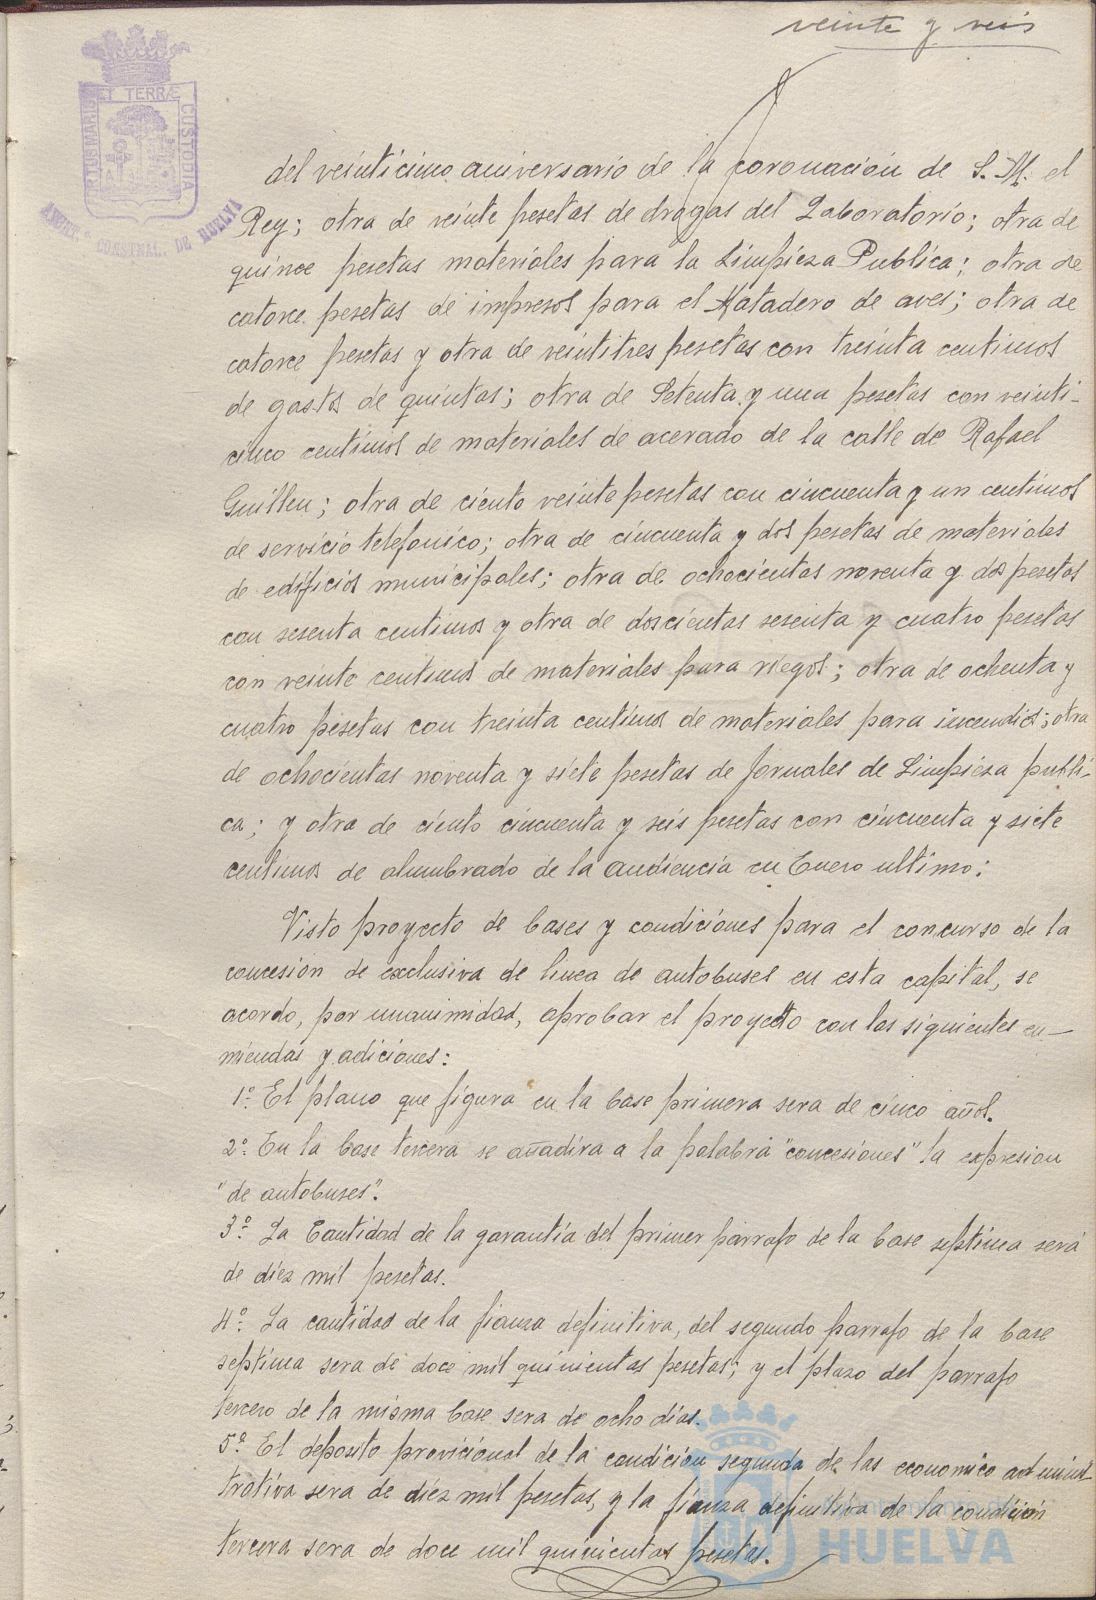 veinte y seis
PORTUS MARIS ET TERRÆ CUSTODIA
AYUNT.º CONSTNAL. DE HUELVA
del veinticinco aniversario de la coronación de S. M. el
Rey; otra de veinte pesetas de drogas del Laboratorio; otra de
quince pesetas materiales para la Limpieza Publica; otra de
catorce pesetas de impresos para el Matadero de aves; otra de
catorce pesetas y otra de veintitres pesetas con treinta centimos
de gastos de quintas; otra de Setenta y una pesetas con veinti-
cinco centimos de materiales de acerado de la calle de Rafael
Guillen; otra de ciento veinte pesetas con cincuenta y un centimos
de servicio telefonico; otra de cincuenta y dos pesetas de materiales
de edificios municipales; otra de ochocientas noventa y dos pesetas
con sesenta centimos y otra de doscientas sesenta y cuatro pesetas
con veinte centimos de materiales para riegos; otra de ochenta y
cuatro pesetas con treinta centimos de materiales para incendios; otra
de ochocientas noventa y siete pesetas de jornales de Limpieza publi-
ca; y otra de ciento cincuenta y seis pesetas con cincuenta y siete
centimos de alumbrado de la audiencia en Enero ultimo:
Visto proyecto de bases y condiciones para el concurso de la
concesión de exclusiva de linea de autobuses en esta capital, se
acordo, por unanimidad, aprobar el proyecto con las siguientes en-
miendas y adiciones:
1º. El plano que figura en la base primera sera de cinco años.
2º. En la base tercera se añadira a la palabra "concesiones" la expresion
"de autobuses".
3º. La Cantidad de la garantía del primer parrafo de la base septima será
de diez mil pesetas.
4º. La cantidad de la fianza definitiva, del segundo parrafo de la base
septima sera de doce mil quinientas pesetas; y el plazo del parrafo
tercero de la misma base sera de ocho días.
5º. El deposito provicional de la condicion segunda de las economico adminis-
trativa sera de diez mil pesetas, y la fianza definitiva de la condición
tercera sera de doce mil quinientas pesetas.
Ayuntamiento de
HUELVA